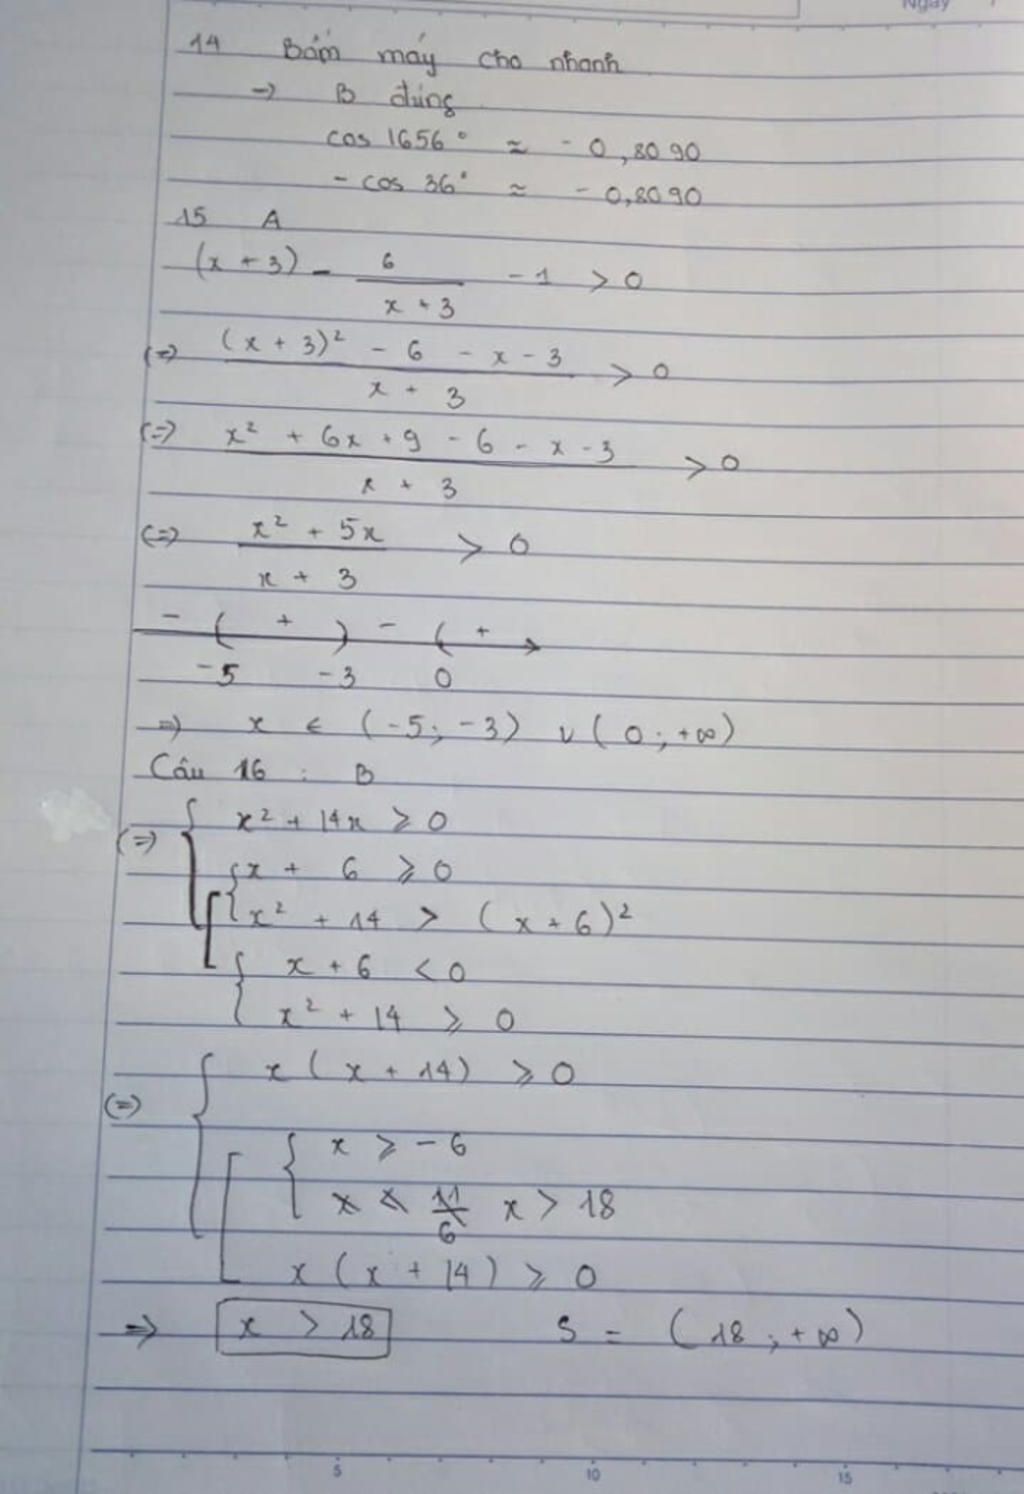 Ngày
14 Bấm máy cho nhanh
→ B đúng
cos 1656° ≈ - 0,8090
- cos 36° ≈ - 0,8090
15 A
(x + 3) - 6/(x + 3) - 1 > 0
(=) ((x + 3)² - 6 - x - 3)/(x + 3) > 0
(=) (x² + 6x + 9 - 6 - x - 3)/(x + 3) > 0
(=) (x² + 5x)/(x + 3) > 0
- ( + ) - ( +
-5 -3 0
=) x ∈ (-5; -3) ∪ (0; +∞)
Câu 16 : B
(=) { x² + 14x ⩾ 0
[ { x + 6 ⩾ 0
x² + 14 > (x + 6)²
{ x + 6 < 0
x² + 14 ⩾ 0
(=) { x (x + 14) ⩾ 0
[ { x ⩾ -6
x > 18
x (x + 14) ⩾ 0
=> x > 18 S = (18 ; +∞)
5 10 15